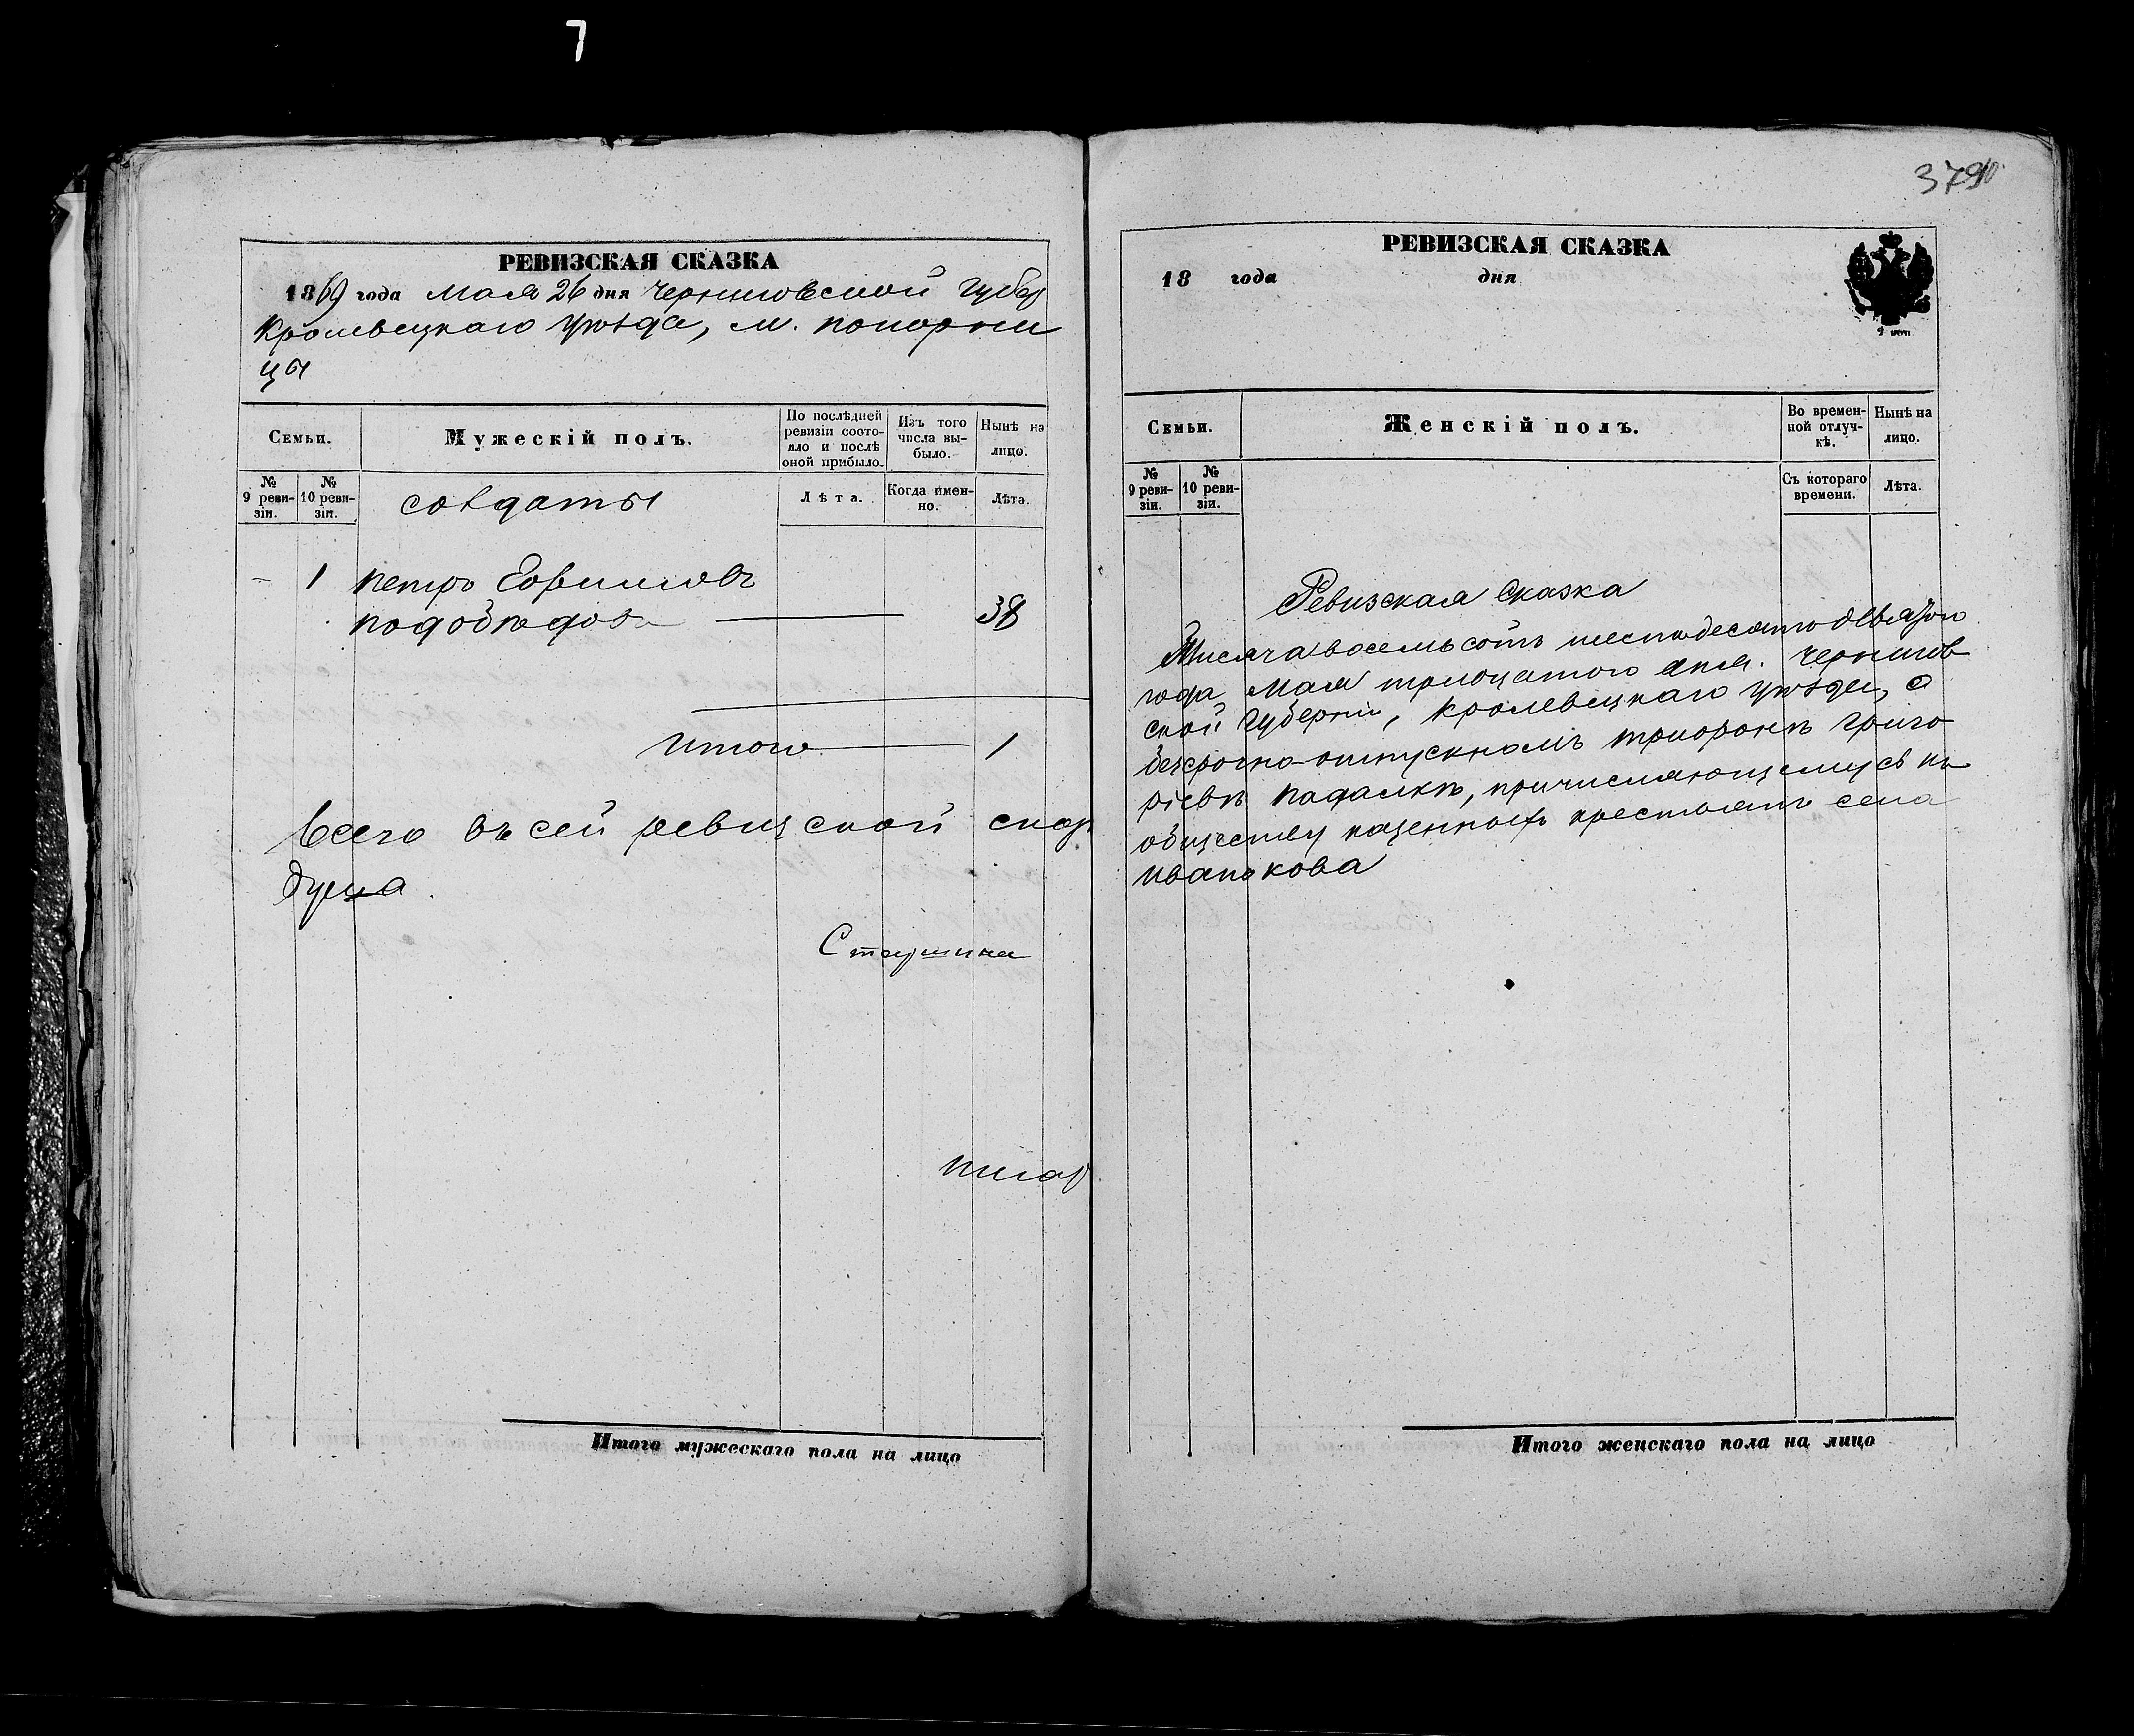 7
РЕВИЗСКАЯ СКАЗКА
1869 года мая 26 дня Черниговской Губер
Кролевецкаго уѣзда, м. понорни
цы
Семьи.
Мужескій полъ.
По послѣдней ревизіи состояло и послѣ оной прибыло.
Изъ того числа выбыло.
Нынѣ на лицо.
№ 9 ревизіи.
№ 10 ревизіи.
солдаты
Лѣта.
Когда именно.
Лѣта.
1 петръ
подобѣдовъ 38
Итого 1
Всего въ сей ревизской сказ
душа.
Старшина
писар
Итого мужескаго пола на лицо
РЕВИЗСКАЯ СКАЗКА
18 года дня
Семьи.
Женскій полъ.
Во временной отлучкѣ.
Нынѣ на лицо.
№ 9 ревизіи.
№ 10 ревизіи.
Съ котораго времени.
Лѣта.
Ревизская Сказка
Тисяча восемьсотъ шестьдесятъ девятого
года мая тридцатого дня. Чернигов
ской Губерніи, Кролевецкаго уѣзда, о
безсрочно-отпускномъ Григо
ріевѣ причисляющемуся къ
обществу казенныхъ крестьянъ села
Иванькова
Итого женскаго пола на лицо